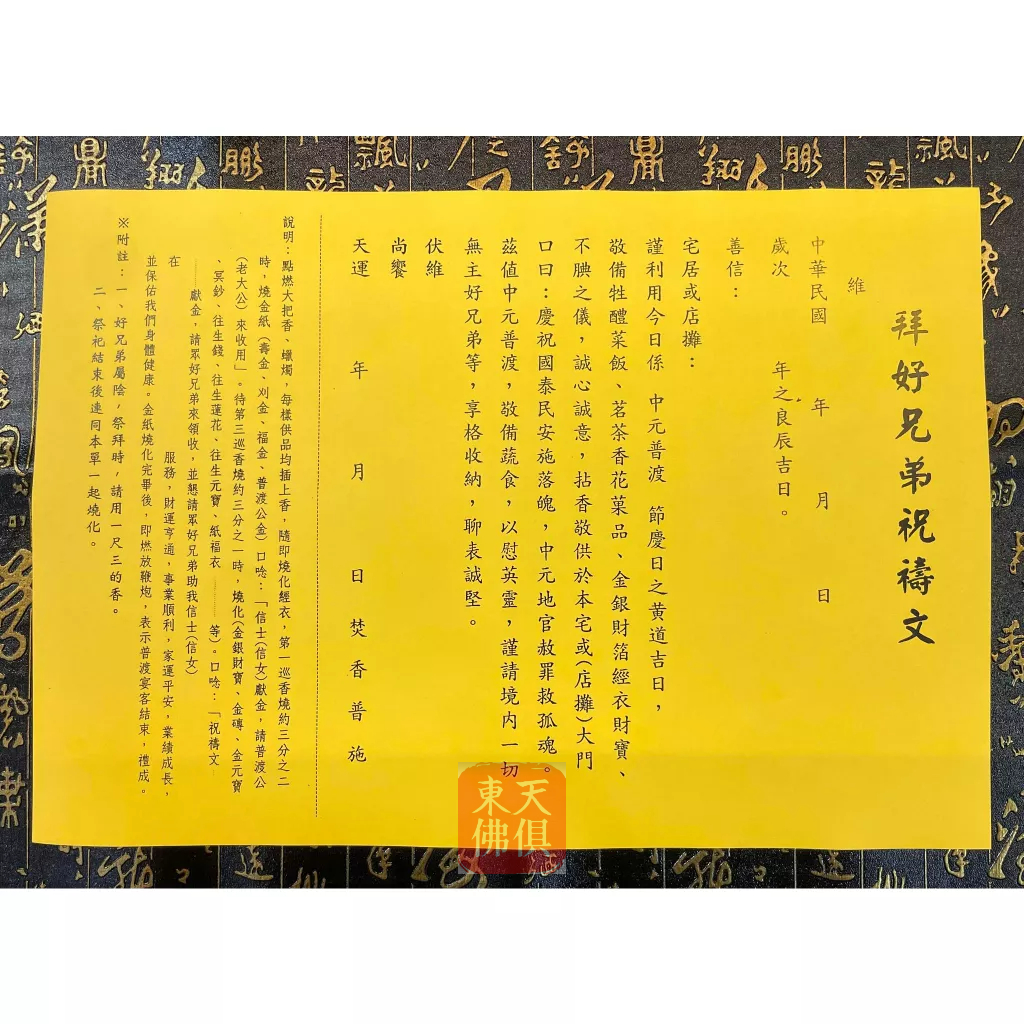 拜好兄弟祝禱文
維
中華民國　年　月　日
歲次　年之良辰吉日。
善信：
宅居或店攤：
謹利用今日係　中元普渡　節慶日之黄道吉日，
敬備牲醴菜飯、茗茶香花菓品、金銀財箔經衣財寶、
不腆之儀，誠心誠意，拈香敬供於本宅或(店攤)大門
口曰：慶祝國泰民安施落魄，中元地官赦罪救孤魂。
茲值中元普渡，敬備蔬食，以慰英靈，謹請境内一切
無主好兄弟等，享格收納，聊表誠堅。
伏維
尚饗
天運　年　月　日焚香普施
說明：點燃大把香、蠟燭，每樣供品均插上香，隨即燒化經衣，第一巡香燒約三分之二
時，燒金紙（壽金、刈金、福金、普渡公金）口唸：「信士(信女)獻金，請普渡公
(老大公）來收用」。待第三巡香燒約三分之一時，燒化(金銀財寶、金磚、金元寶
、冥鈔、往生錢、往生蓮花、往生元寶、紙福衣…………等)。口唸：「祝禱文
獻金，請眾好兄弟來領收，並懇請眾好兄弟助我信士(信女)
在　服務，財運亨通，事業順利，家運平安，業績成長，
並保佑我們身體健康。金紙燒化完畢後，即燃放鞭炮，表示普渡宴客結束，禮成。
※附註：一、好兄弟屬陰，祭拜時，請用一尺三的香。
二、祭祀結束後連同本單一起燒化。
天俱
東佛